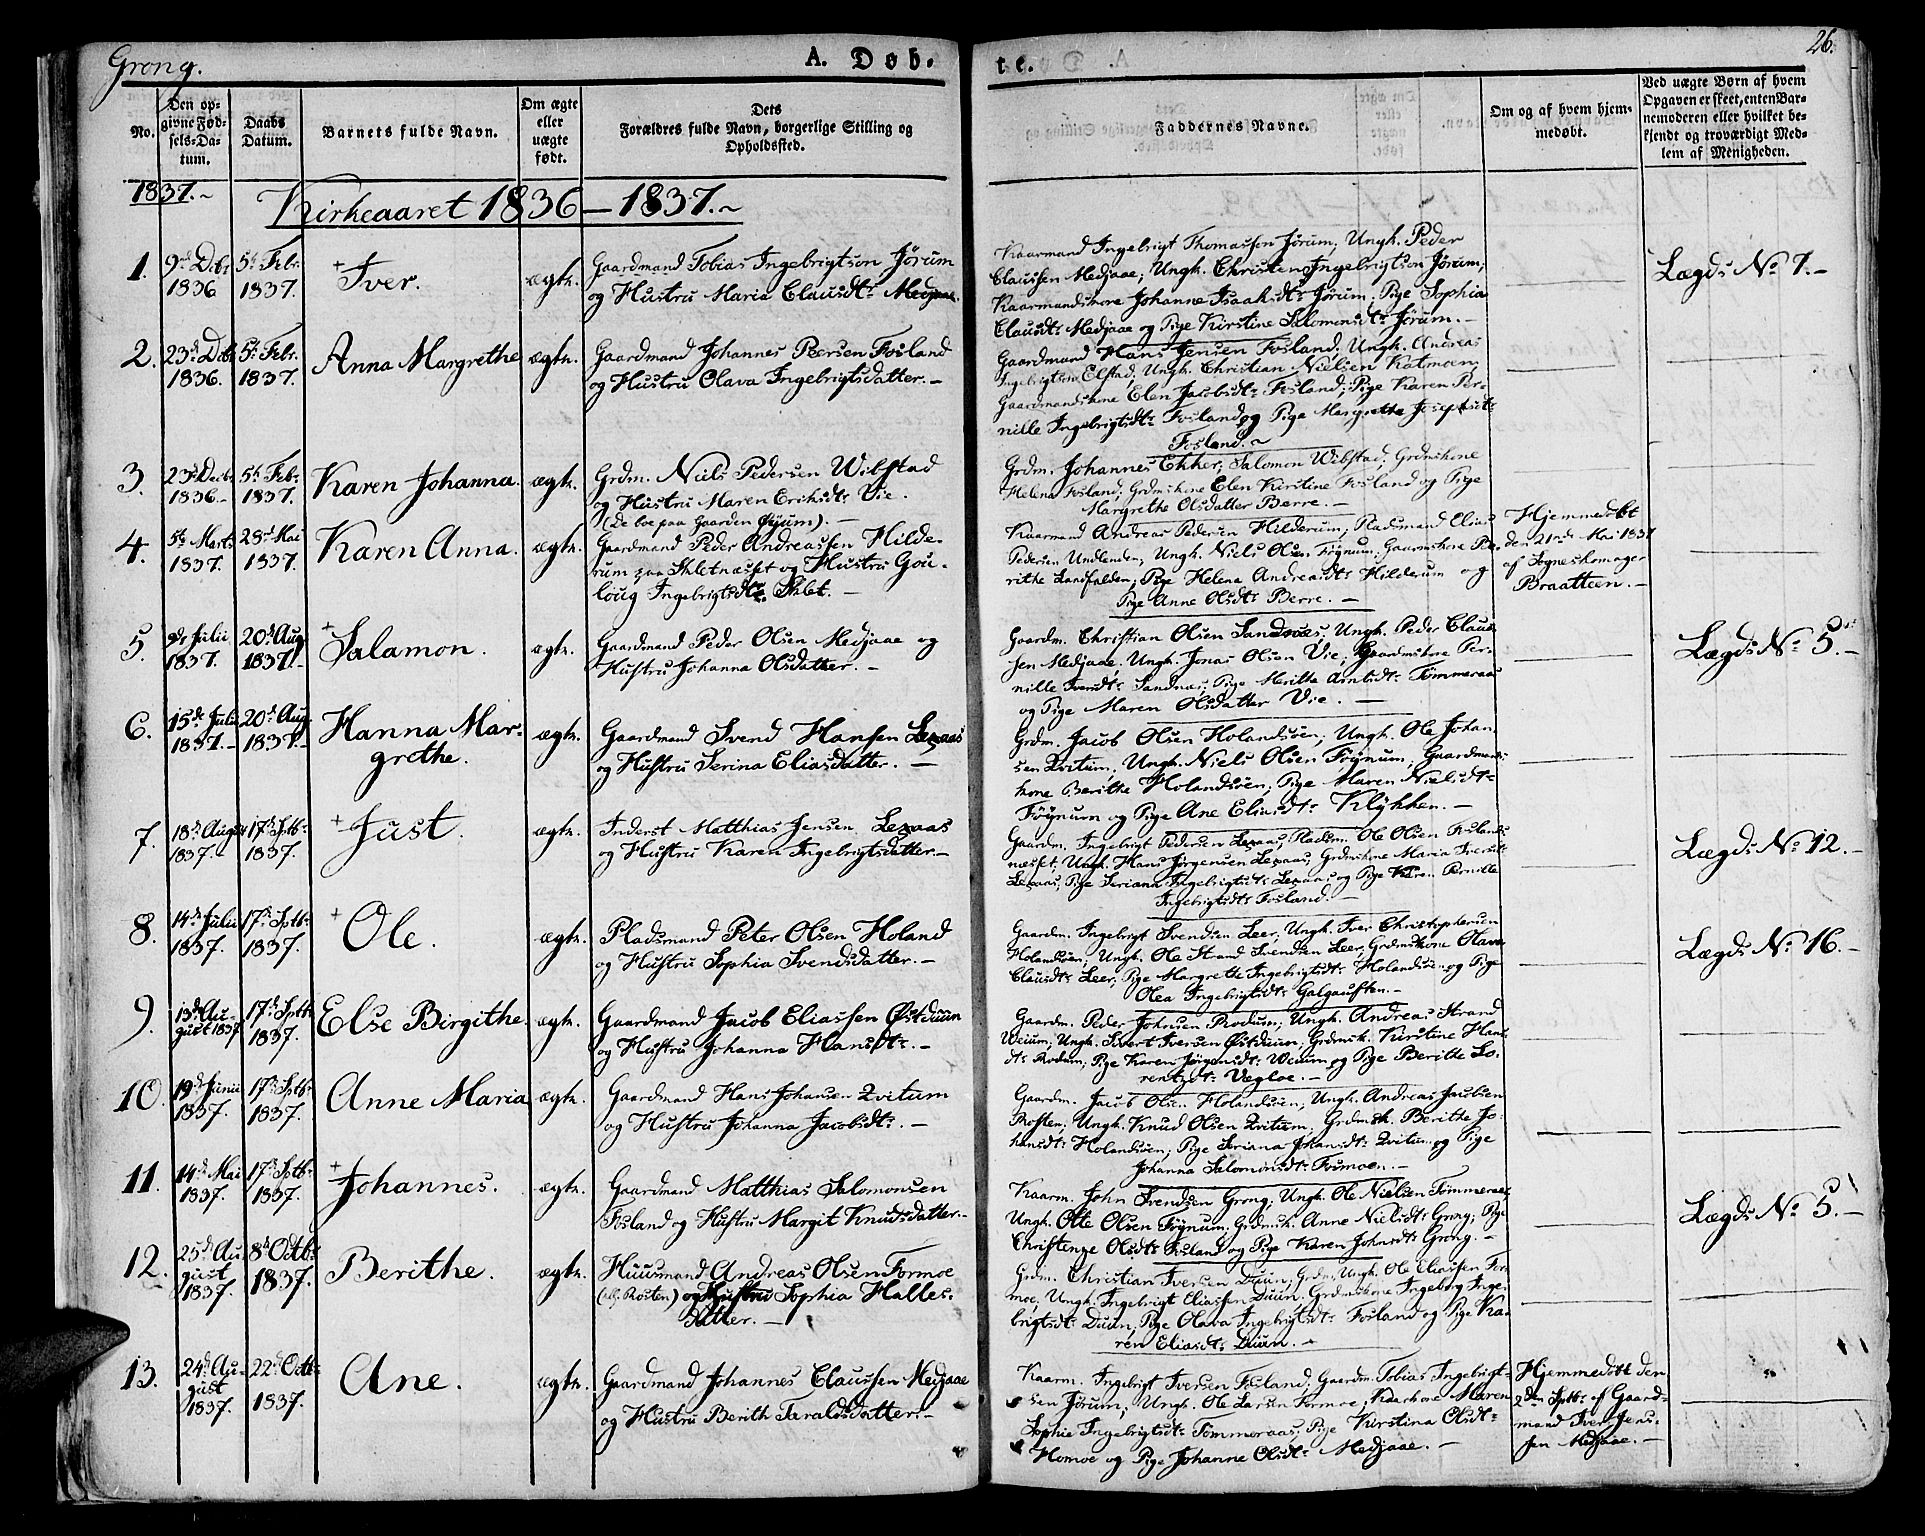 Grong.
A. Døb-
te.
26.
No.
Den op-
givne Fød-
sels-Da-
tum.
Daabs
Datum.
Barnets fulde Navn.
Om ægte
eller
uægte
født.
Dets
Forældres fulde Navn, borgerlige Stilling og
Opholdssted.
Faddernes Navne.
Om og af hvem hjem-
medøbt.
Ved uægte Børn af hvem
Opgaven er skeet, enten Bar-
nemoderen eller hvilket be-
kjendt og troværdigt Med-
lem af Menigheden.
1837.~
Kirkeaaret 1836 – 1837.~
1.
9de Decbr
1836
5te Febr.
1837.
+ Iver.
ægte.
Gaardmand Tobias Ingebrigtson Jørum
og Hustru Maria Clausdtr Medjaae.
Kaarmand Ingebrigt Thomassen Jørum; Ungk. Peder
Claussen Medjaae; Ungk. Christen Ingebrigtson Jørum;
Kaarmandskone Johanna Isaaksdtr Jørum; Pige Sophia
Clausdtr Medjaae og Pige Kirstine Salomonsdtr Jørum.–
Lægds No 7.–
2.
23de Decbr
1836.
5te Febr.
1837.
Anna Margrethe
ægte.
Gaardmand Johannes Peersen Fosland
og Hustru Olava Ingebrigtsdatter.–
Gaardmand Hans Jensen Fosland; Ungk. Andreas
Ingebrigtsen Elstad; Ungk. Christian Nielsen Katmoen;
Gaardmandskone Elen Jacobsdtr Fosland; Pige Karen Per-
nille Ingebrigtsdtr Fosland og Pige Margrethe Josephsdtr
Fosland.~
3.
23de Decbr
1836.–
5te Febr.
1837.
Karen Johanna.
ægte.
Grdm. Niels Pedersen Wibstad
og Hustru Maren Eriksdtr Vie.
(De boe paa Gaarden Øyum).–
Grdm. Johannes Ekker; Salomon Wibstad; Grdmskone
Helena Fosland; Grdmskone Elen Kirstine Fosland og Pige
Margrethe Olsdatter Berre.–
4.
5te Marts
1837.
28de Mai
1837.
Karen Anna.
ægte.
Gaardmand Peder Andreassen Hilde-
rum paa Skletnæsset og Hustru Gou-
loug Ingebrigtsdtr Sklet.–
Kaarmand Andreas Pedersen Hilderum; Pladsmand Elias
Pedersen Undlenden; Ungk. Niels Olsen Føynum; Gaarmskone Be-
rithe Landfalden; Pige Helena Andreasdtr Hilderum og
Pige Anne Olsdtr Berre.–
Hjemmedøbt
den 21nde Mai 1837
af Sogneskomager
Braatteen.–
5.
Julii
1837.
20de Aug.
1837.–
+ Salamon.
ægte.
Gaardmand Peder Olsen Medjaae og
Hustru Johanna Olsdatter.–
Gaardm. Christian Olsen Sandnæs; Ungk. Peder Claus-
sen Medjaae; Ungk. Jonas Olsen Vie; Gaardmskone Per-
nille Svendtr Sandnæs; Pige Meritte Arntsdtr Tømmeraas
og Pige Maren Olsdatter Vie.–
Lægds No 5.–
6.
15de Julii
1837.–
20de Aug.
1837.–
Hanna Mar-
grethe.
ægte.
Gaardmand Svend Hansen Lexaas
og Hustru Serina Eliasdatter.–
Grdm. Jacob Olsen Holandsøen; Ungk. Ole Johan-
sen Zvitum; Ungk. Niels Olsen Føynum; Gaardmands-
kone Berithe Holandsøen; Pige Maren Nielsdtr
Føynum og Pige Ane Eliasdtr Klykken.–
7.
18de August
1837.–
17de Sptbr.
1837.
+ Just.
ægte.
Inderst Matthias Jensen Lexaas
og Hustru Karen Ingebrigtsdatter.–
Gaardm. Ingebrigt Pedersen Lexaas; Pladsm. Ole Olsen Foslands-
næsset; Ungk. Hans Jørgensen Lexaas; Grdmskone Maria Iversdtr
Lexaas; Pige Seriana Ingebrigtsdtr Lexaas og Pige Karen Pernille
Ingebrigtsdtr Fosland.–
Lægds No 12.–
8.
14de Julii
1837.
17de Sptbr.
1837.
+ Ole.
ægte.
Pladsmand Peter Olsen Holand
og Hustru Sophia Svendsdatter.–
Gaardm. Ingebrigt Svendsen Leer; Ungk. Iver Christophersen
Holandsøen; Ungk. Ole Strand Svendsen Leer; Grdmskone Olava
Clausdtr Leer; Pige Margrethe Ingebrigtsdtr Holandsøen og Pige
Olea Ingebrigtsdtr Galgauften.–
Lægds No 16.–
9.
13de Au-
gust 1837
17de Sptbr
1837.
Else Birgithe.
ægte.
Gaardmand Jacob Eliassen Østduun
og Hustru Johanna Hansdtr.–
Gaardm. Peder Johnsen Rodum; Ungk. Andreas Strand
Weium; Ungk. Sivert Iversen Østduun; Grdmsk. Kirstine Hans-
dtr Rodum; Pige Karen Jørgensdtr Weium og Pige Berithe Lo-
rentzdtr Vegloe.–
10.
19de Junii
1837.
17de Sptbr.
1837.
Anne Maria
ægte.
Gaardmand Hans Johansen Zvitum
og Hustru Johanna Jacobsdtr.–
Gaardm. Jacob Olsen Holandsøen; Ungk. Andreas Jacobsen
Rosten; Ungk. Knud Olsen Zvitum; Grdmsk. Berithe Jo-
hansdtr Holandsøen; Pige Seriana Johansdtr Zvitum og Pige
Johanna Salomonsdtr Fosmoen.–
11.
14de Mai
1837.
17de Sptbr
1837.
+ Johannes.
ægte.
Gaardmand Matthias Salomonsen
Fosland og Hustru Margit Knudsdatter.–
Kaarm. John Svendsen Grong; Ungk. Ole Nielsen Tømmeraas;
Ungk. Otte Olsen Føynum; Grdmsk. Anne Nielsdtr Grong; Pige
Christenze Olsdtr Fosland og Pige Karen Johnsdtr Grong.–
Lægds No 5.–
12.
25de Au-
gust
1837.
8de Octbr
1837.
Berithe.
ægte.
Huusmand Andreas Olsen Formoe
(alf. Rosten) og Hustru Sophia Halles-
datter.–
Grdm. Christian Iversen Duun; Grdm. Ungk. Ole Eliassen For-
moe; Ungk. Ingebrigt Eliassen Duun; Grdmskone Ingeborg Inge-
brigtsdtr Duun; Pige Olava Ingebrigtsdtr Fosland og Pige Ka-
ren Eliasdtr Duun.–
13.
24de Au-
gust
1837.
22de Octbr
1837.
Ane.
ægte.
Gaardmand Johannes Claussen Medjaae
og Hustru Berith Taraldsdatter.–
Kaarm. Ingebrigt Iversen Fosland; Gaardm. Tobias Ingebrigt-
sen Jørum; Ungk. Ole Larsen Formoe; Kaarkone Maren
Sophie Ingebrigtsdtr Tømmeraas; Pige Kirstina Olsdtr
Homoe og Pige Johanne Olsdtr Medjaae.–
Hjemmedøbt den
2den Sptbr af Gaard-
mand Iver Jens-
sen Medjaae.–